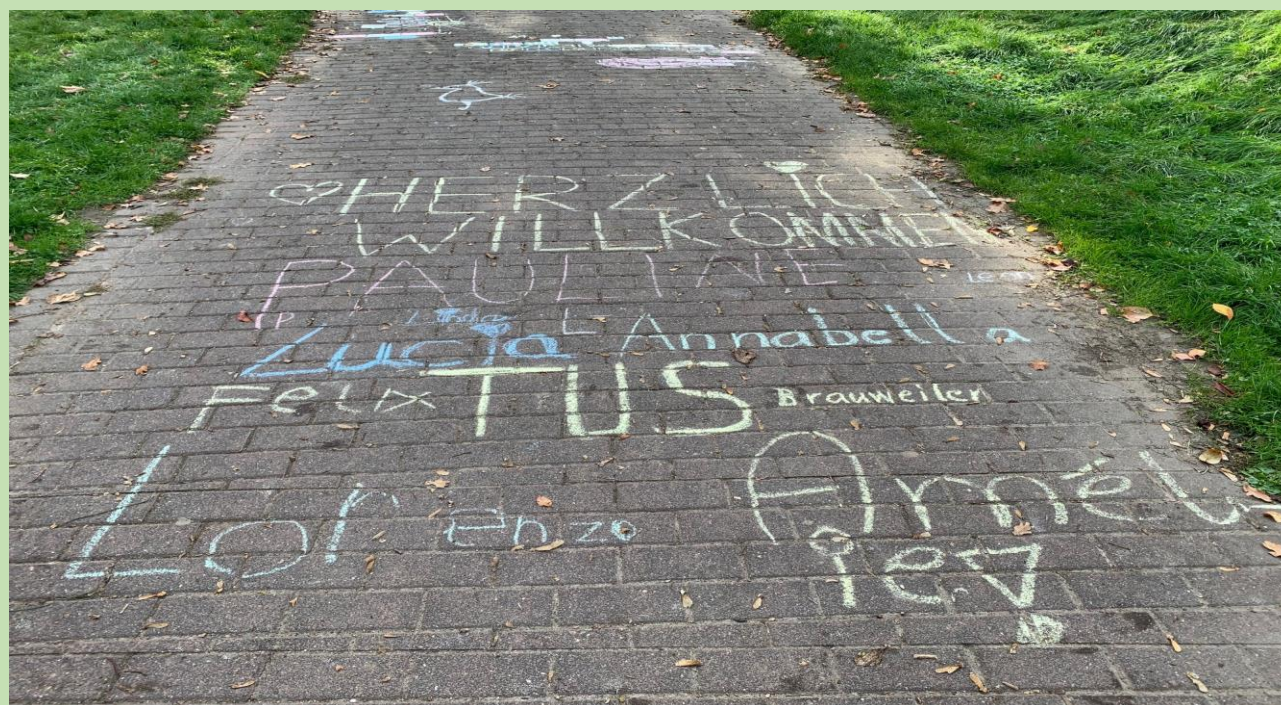 HERZLICH
WILLKOMME
PAULINE
Leon
Linda
Lucia Annabella
Felix TUS Brauweiler
Lorenzo Arnél
ie